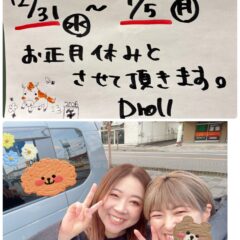 12/31㊌〜1/5㊊
お正月休みと
させて頂きます。
Droll